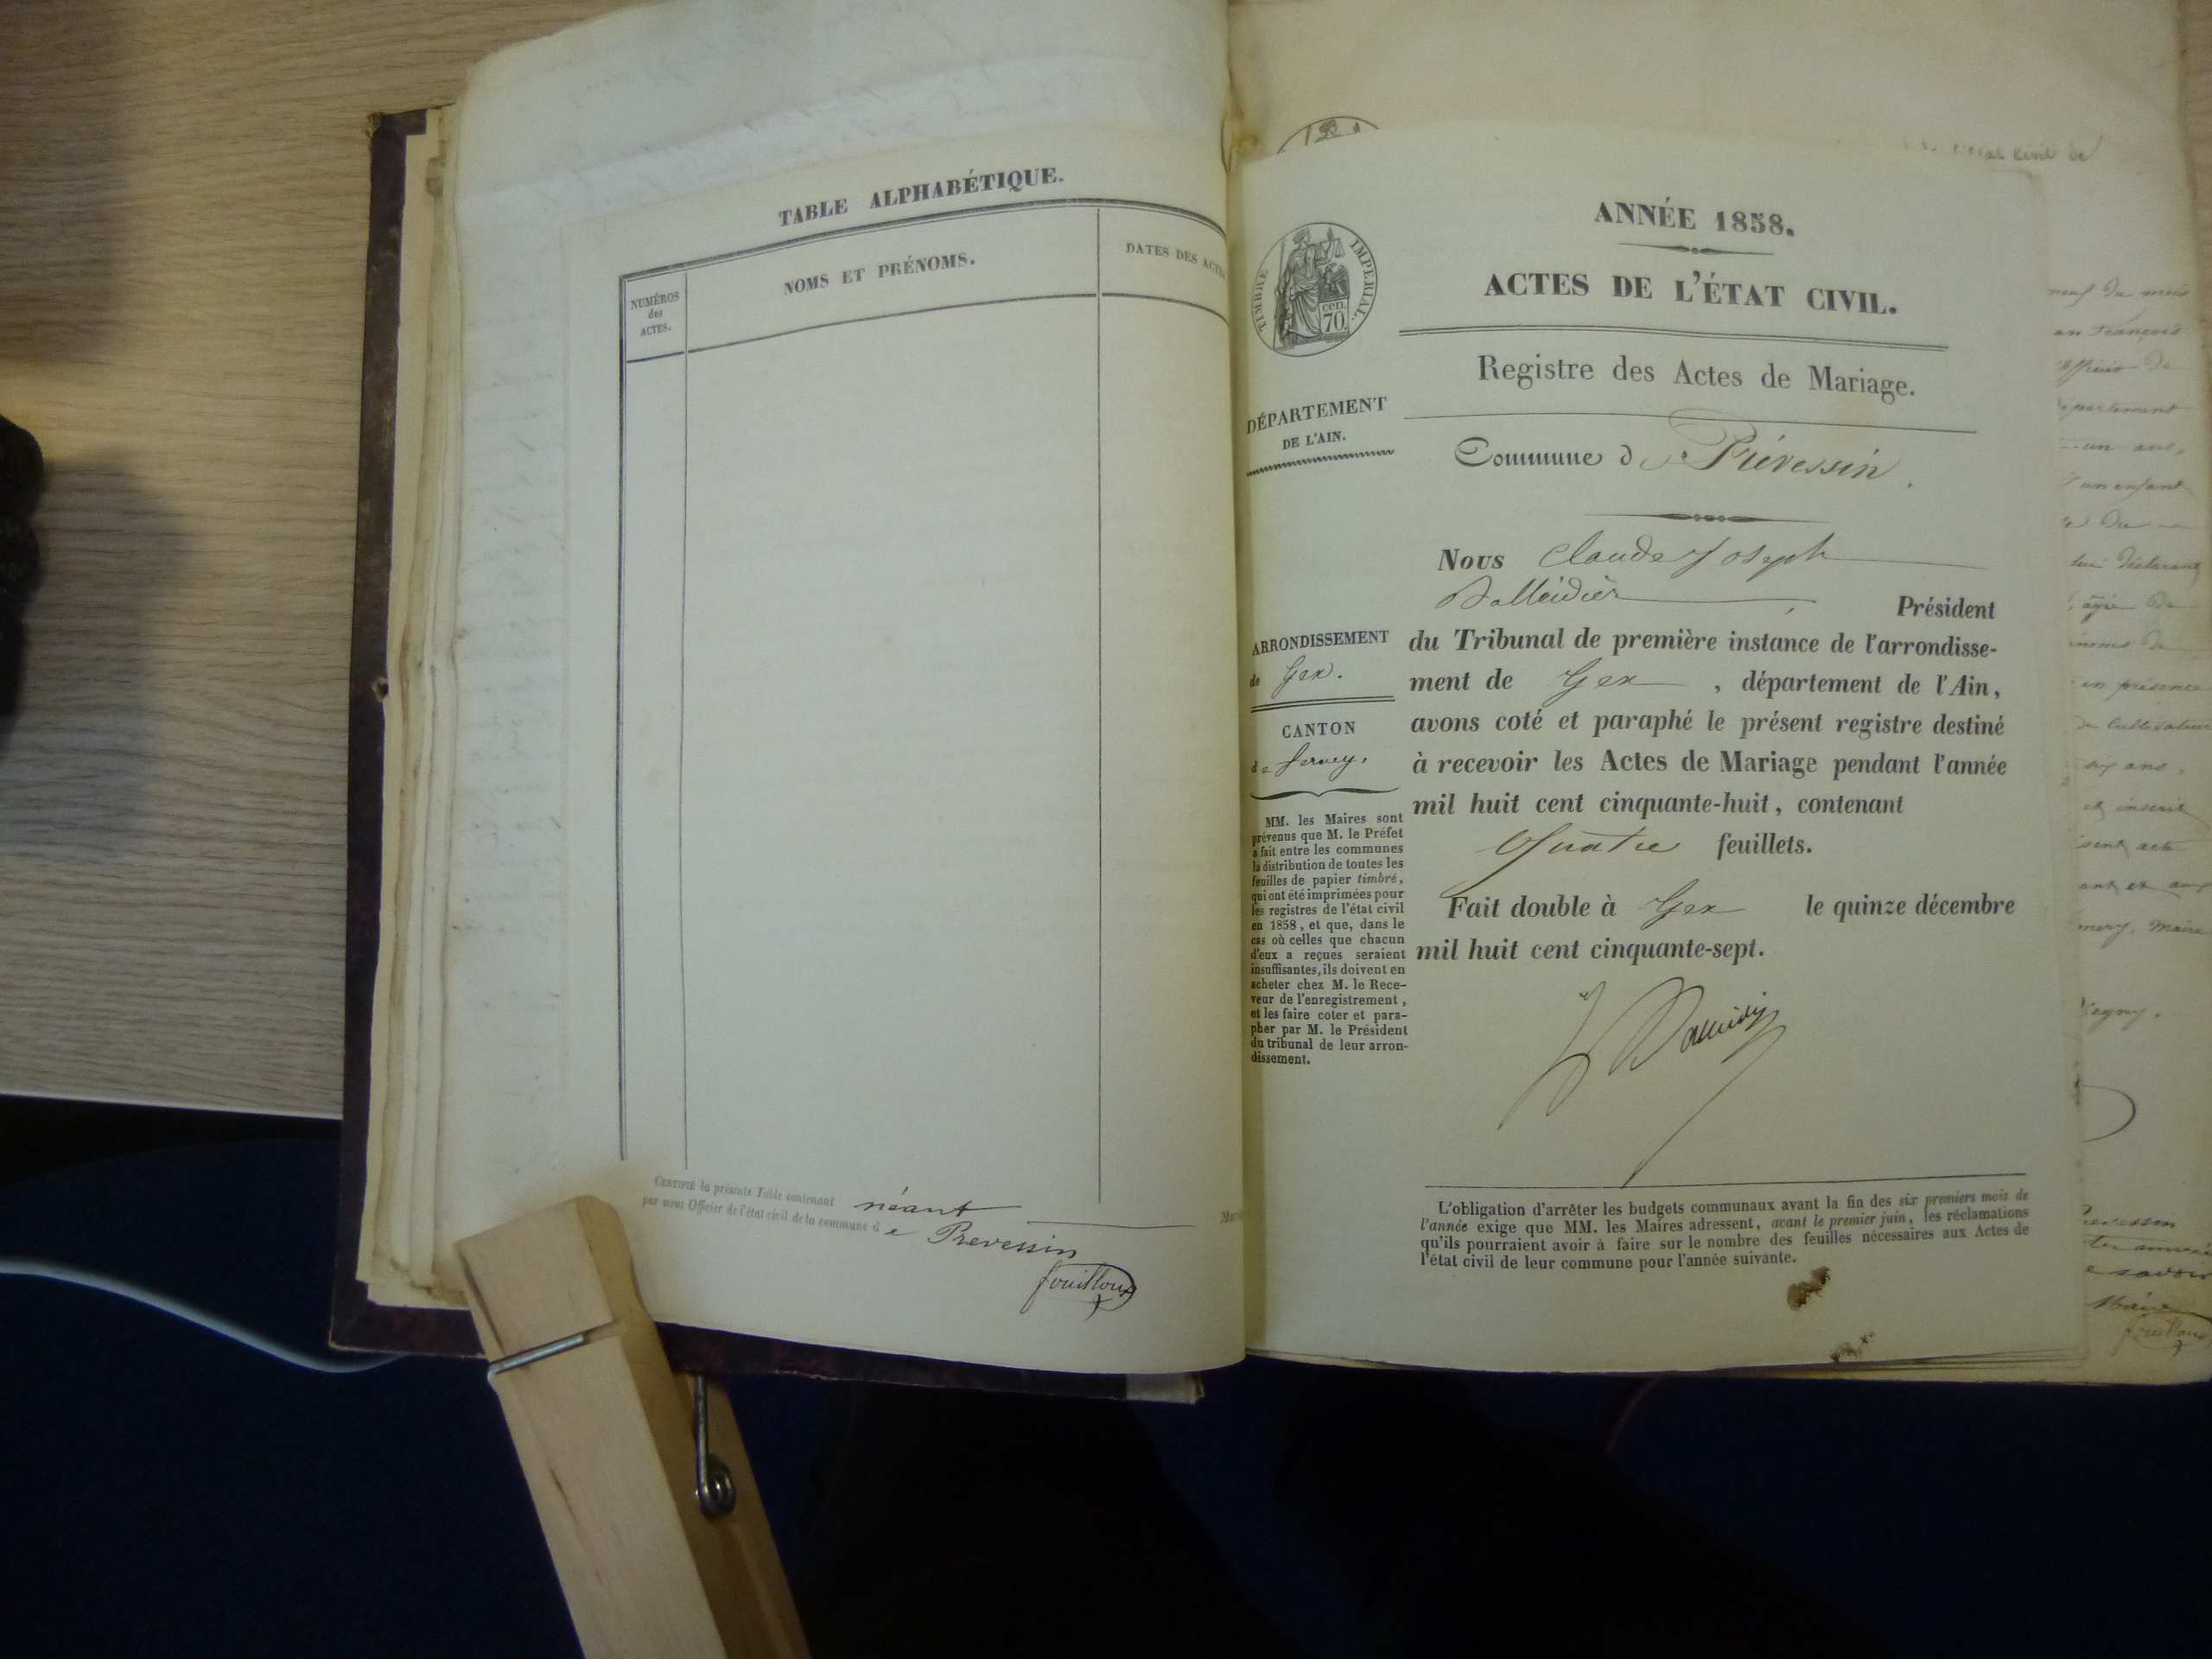 TABLE ALPHABÉTIQUE.
NUMÉROS
des
ACTES.
NOMS ET PRÉNOMS.
DATES DES ACTES
CERTIFIÉ la présente Table contenant néant
par nous Officier de l'état civil de la commune de Prevessin
fouilloux
ANNÉE 1858.
ACTES DE L'ÉTAT CIVIL.
TIMBRE IMPERIAL.
cen.
70.
Registre des Actes de Mariage.
DÉPARTEMENT
DE L'AIN.
Commune de Prévessin.
Nous Claude Joseph
Président
ARRONDISSEMENT
de Gex.
CANTON
de ferney.
du Tribunal de première instance de l'arrondisse-
ment de Gex, département de l'Ain,
avons coté et paraphé le présent registre destiné
à recevoir les Actes de Mariage pendant l'année
mil huit cent cinquante-huit, contenant
Quatre feuillets.
Fait double à Gex le quinze décembre
mil huit cent cinquante-sept.
MM. les Maires sont
prévenus que M. le Préfet
a fait entre les communes
la distribution de toutes les
feuilles de papier timbré,
qui ont été imprimées pour
les registres de l'état civil
en 1858, et que, dans le
cas où celles que chacun
d'eux a reçues seraient
insuffisantes, ils doivent en
acheter chez M. le Rece-
veur de l'enregistrement,
et les faire coter et para-
pher par M. le Président
du tribunal de leur arron-
dissement.
L'obligation d'arrêter les budgets communaux avant la fin des six premiers mois de
l'année exige que MM. les Maires adressent, avant le premier juin, les réclamations
qu'ils pourraient avoir à faire sur le nombre des feuilles nécessaires aux Actes de
l'état civil de leur commune pour l'année suivante.
du mois
François
un ans,
un enfant
en présence
cultivateur
ans,
et inscrit
Maire
fouilloux